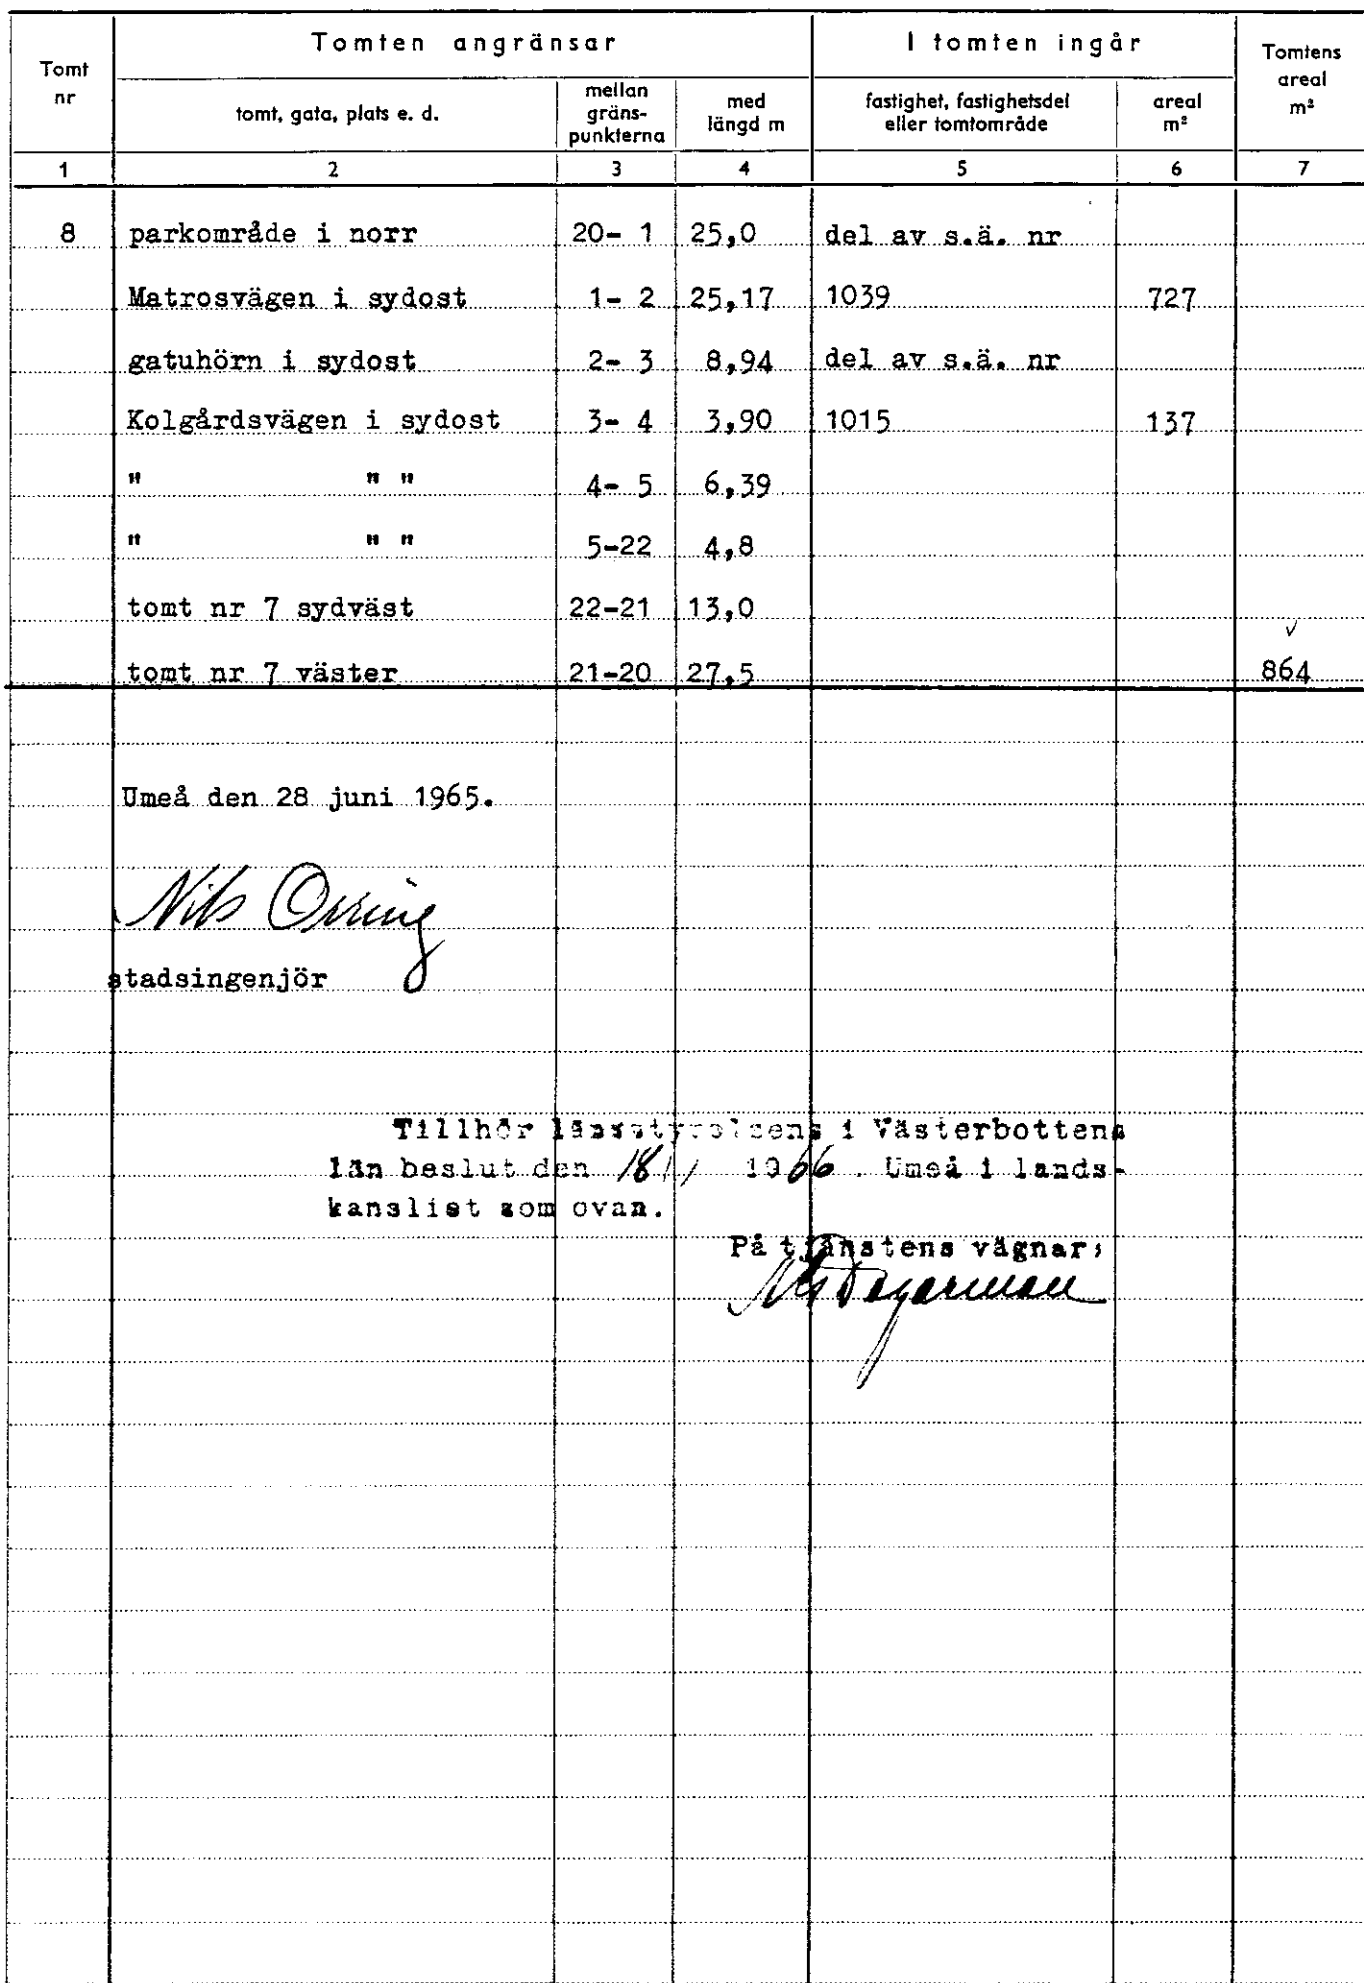 Tomt nr | Tomten angränsar | I tomten ingår | Tomtens areal m²
tomt, gata, plats e. d. | mellan gräns-punkterna | med längd m | fastighet, fastighetsdel eller tomtområde | areal m²
1 | 2 | 3 | 4 | 5 | 6 | 7
8 parkområde i norr 20- 1 25,0 del av s.ä. nr
Matrosvägen i sydost 1- 2 25,17 1039 727
gatuhörn i sydost 2- 3 8,94 del av s.ä. nr
Kolgårdsvägen i sydost 3- 4 3,90 1015 137
" " " 4- 5 6,39
" " " 5-22 4,8
tomt nr 7 sydväst 22-21 13,0
tomt nr 7 väster 21-20 27,5 864
Umeå den 28 juni 1965.
Nils Orring
stadsingenjör
Tillhör länsstyrelsens i Västerbottens
län beslut den 18/1 1966. Umeå i lands-
kansliet som ovan.
På tjänstens vägnar:
Dagerman